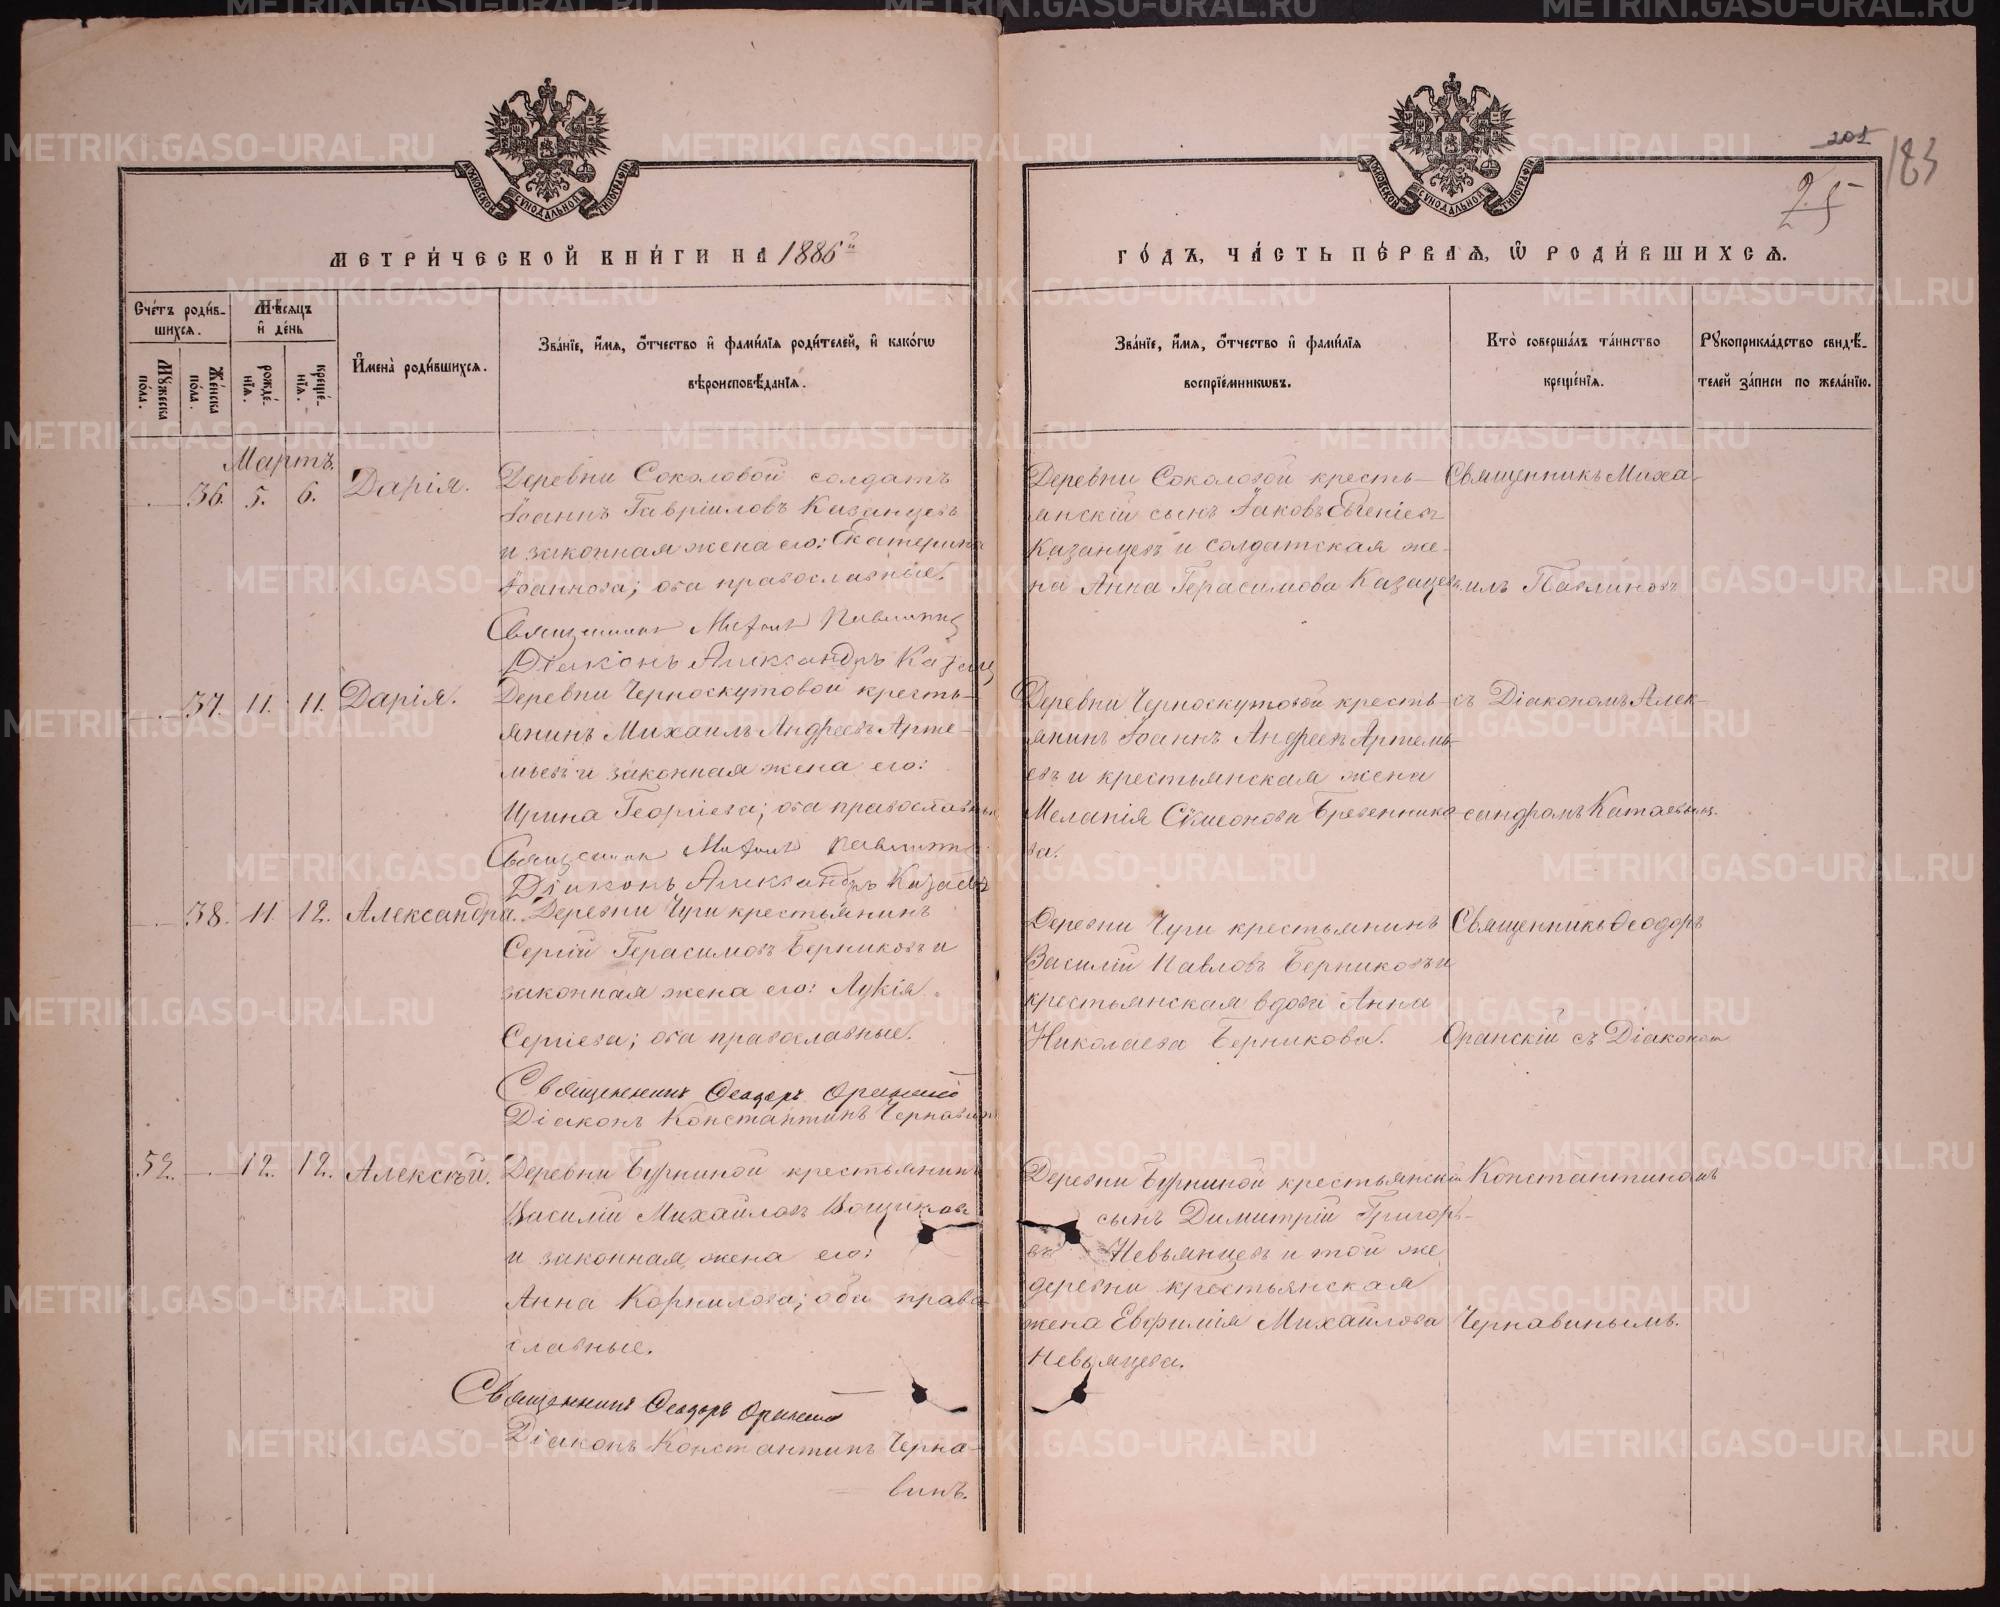 201
183
25
МОСКОВСКОЙ СѴНОДАЛЬНОЙ ТИПОГРАФІИ
МОСКОВСКОЙ СѴНОДАЛЬНОЙ ТИПОГРАФІИ
МЕТРИ́ЧЕСКОЙ КНИ́ГИ НА 1886й
ГО́ДЪ, ЧА́СТЬ ПЕ́РВАѦ, Ѡ҆ РОДИ́ВШИХСѦ.
Сче́тъ роди́в-
шихсѧ.
Мѣ́сѧцъ
и҆ де́нь
Му́жеска
по́ла.
Же́нска
по́ла.
рожде́-
нїѧ.
креще́-
нїѧ.
И҆мена̀ роди́вшихсѧ.
Зва́нїе, и҆́мѧ, ѻ҆́тчество и҆ фами́лїѧ роди́телей, и҆ како́гѡ
вѣроисповѣ́данїѧ.
Зва́нїе, и҆́мѧ, ѻ҆́тчество и҆ фами́лїѧ
воспрїе́мникѡвъ.
Кто̀ соверша́лъ та́инство
креще́нїѧ.
Рꙋкоприкла́дство свидѣ́-
телей за́писи по жела́нїю.
Мартъ.
36. 5. 6. Дарія.
Деревни Соколовой солдатъ
Іоаннъ Гавріиловъ Казанцевъ
и законная жена его: Екатерина
Іоаннова; оба православные.
Священникъ Михаилъ Павлинов
Діаконъ Александръ Катаев
Деревни Соколовой кресть-
янскій сынъ Іаковъ Евгеніевъ
Казанцевъ и солдатская же-
на Анна Герасимова Казанцева
Священникъ Миха-
илъ Павлиновъ
37. 11. 11. Дарія.
Деревни Черноскутовой кресть-
янинъ Михаилъ Андреевъ Арте-
мьевъ и законная жена его:
Ирина Георгіева; оба православные
Священник Михаил Павлинов
Діаконъ Александръ Катаевъ
Деревни Черноскутовой кресть-
янинъ Іоаннъ Андреевъ Артемь-
евъ и крестьянская жена
Меланія Симеонова Бревенник-
ва.
съ Діакономъ Алек-
сандромъ Катаевымъ.
38. 11. 12. Александра.
Деревни Чуги крестьянинъ
Сергій Герасимовъ Берниковъ и
законная жена его: Лукія
Сергіева; оба православные.
Священникъ Ѳеодоръ Оранскій
Діаконъ Константинъ Чернавинъ
Деревни Чуги крестьянинъ
Василій Павловъ Берниковъ и
крестьянская вдова Анна
Николаева Берникова.
Священникъ Ѳеодоръ
Оранскій съ Діакономъ
52. 12. 12. Алексѣй.
Деревни Бурниной крестьянинъ
Василій Михайловъ Вощиковъ
и законная жена его:
Анна Корнилова; оба право-
славные.
Священникъ Ѳеодоръ Оранскій
Діаконъ Константинъ Черна-
винъ.
Деревни Бурниной крестьянскій
сынъ Димитрій Григорь-
евъ Невьянцевъ и той же
деревни крестьянская
жена Евфимія Михайлова
Невьянцева.
Константиномъ
Чернавинымъ.
METRIKI.GASO-URAL.RU